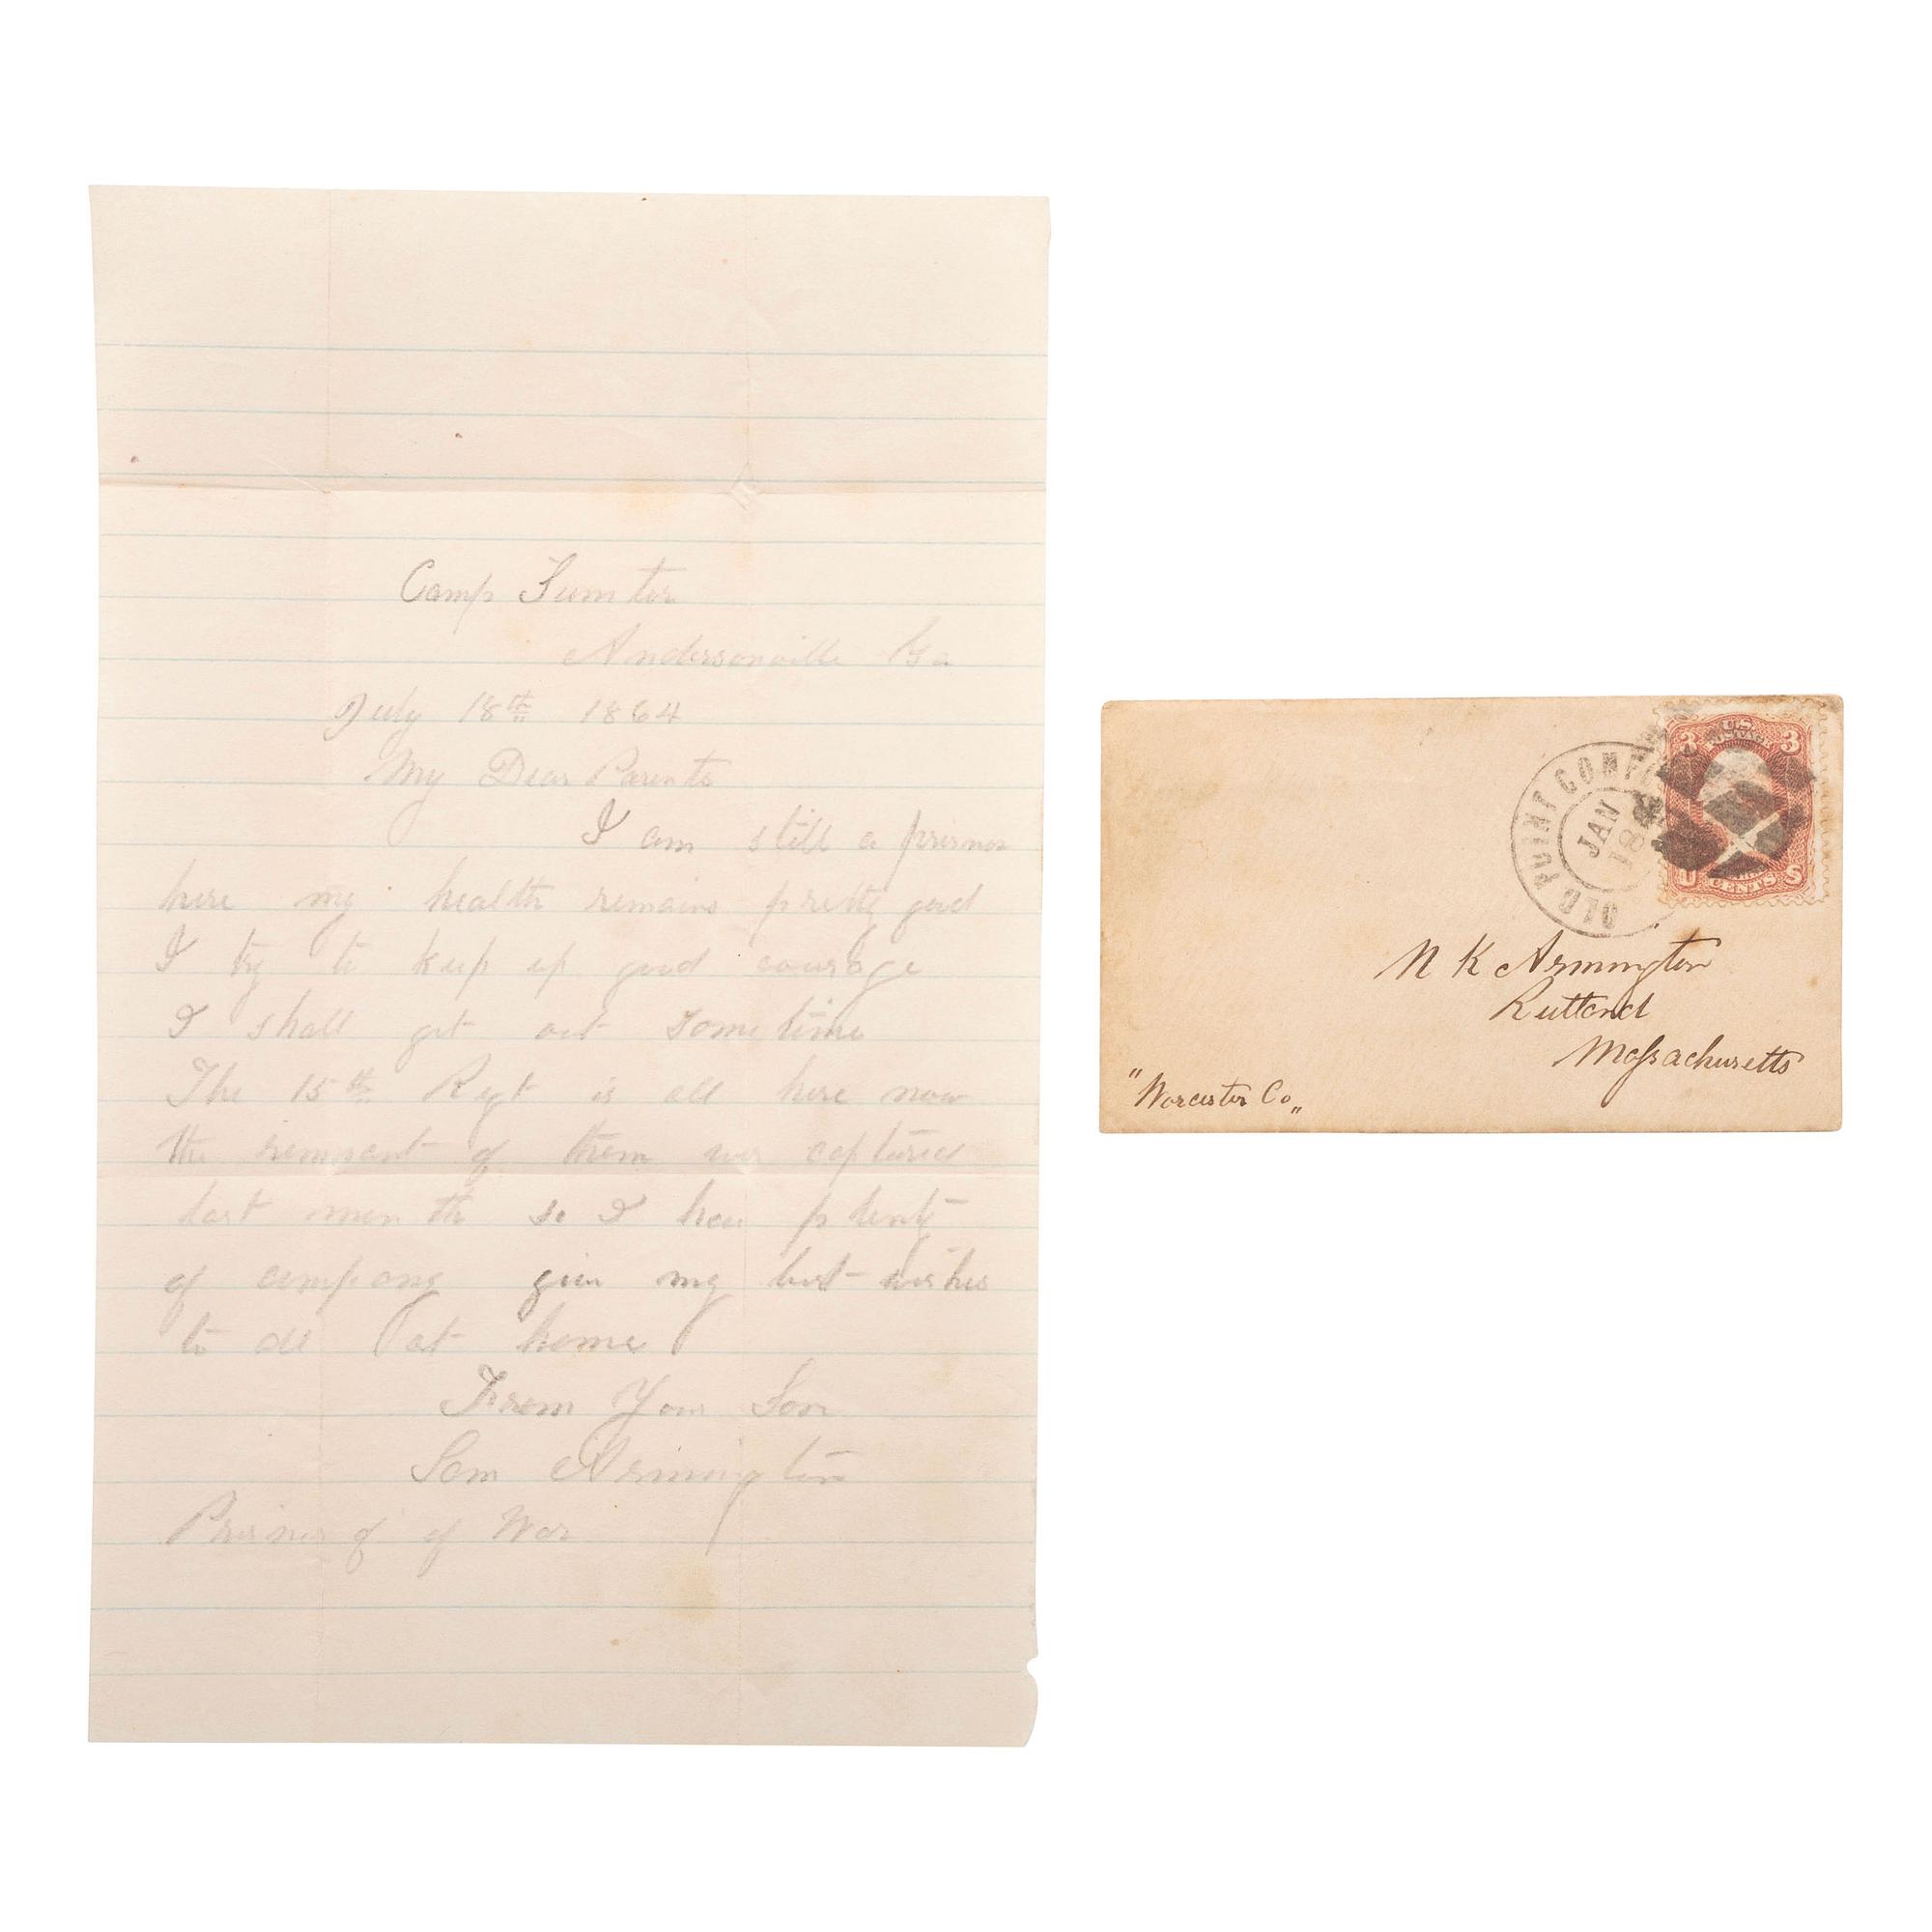 Camp Sumter
Andersonville Ga
July 18th 1864
My Dear Parents
I am still a prisnor
here my health remains pretty good
I try to keep up good courage
I shall get out sometime
The 15th Regt is all here now
the remnant of them was captured
last month so I have plenty
of company give my best wishes
to all at home
From Your Son
Sam Armington
Prisnor of of War
OLD POINT COMFORT
JAN
186
U.S.
POSTAGE
3 3
U CENTS S
N K Armington
Rutland
Massachusetts
"Worcester Co"